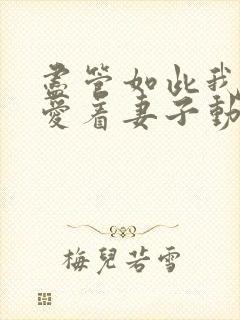 盡管如此我
愛着妻子動
梅兒若雪